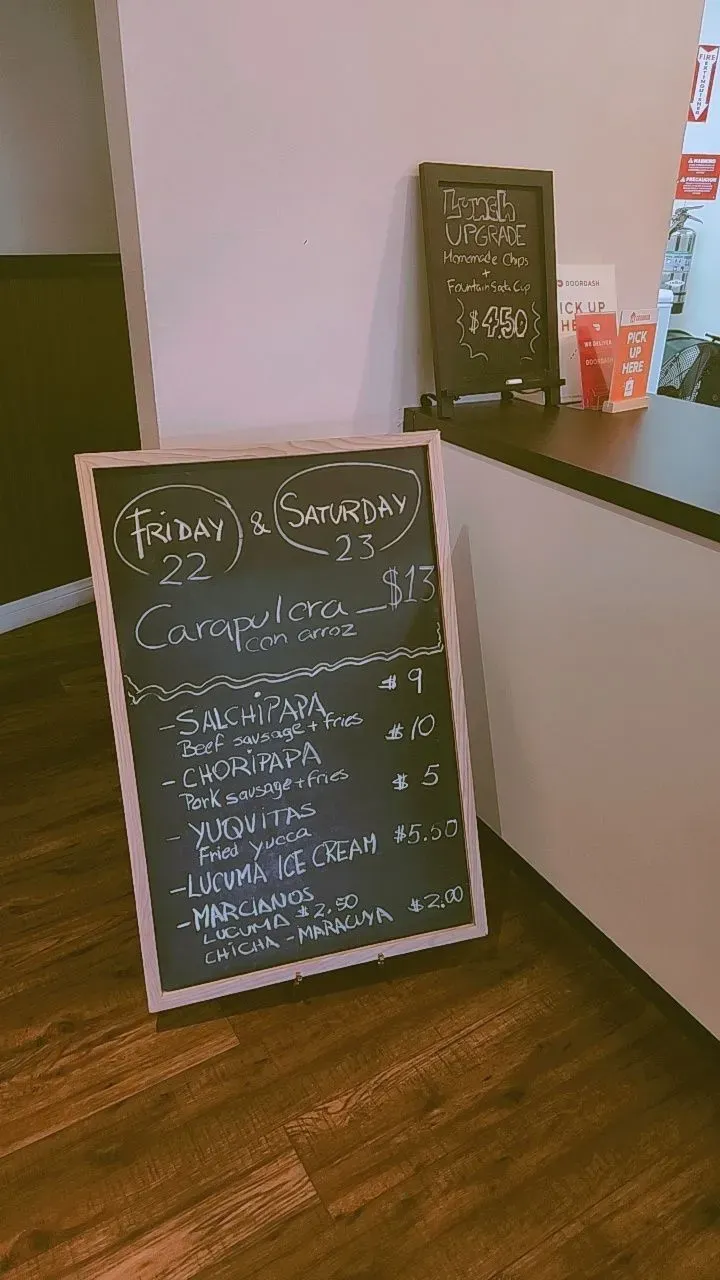 FIRE
EXTINGUISHER
WARNING
PRECAUCION
Lunch
UPGRADE
Homemade Chips
+
Fountain Soda Cup
$4.50
DOORDASH
PICK UP
HE
WE DELIVER
DOORDASH
PICK
UP
HERE
FRIDAY & SATURDAY
22 23
Carapulcra $13
con arroz
- SALCHIPAPA $9
Beef sausage + fries
- CHORIPAPA $10
Pork sausage + fries
- YUQUITAS $5
Fried yucca
- LUCUMA ICE CREAM $5.50
- MARCIANOS
LUCUMA $2.50
CHICHA - MARACUYA $2.00